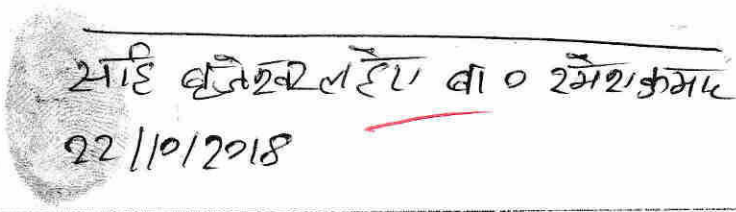 साहि बृजेश्वर लहैरा बा ० रमेश कुमार
22/10/2018